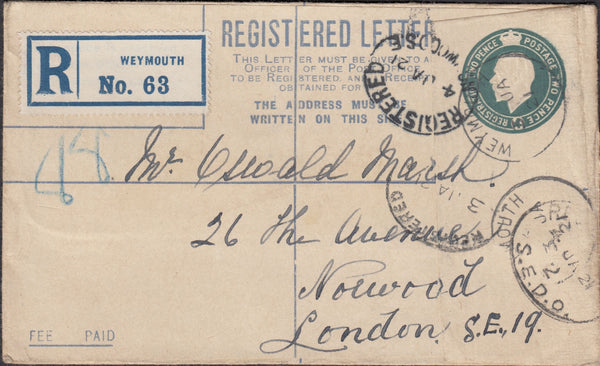 REGISTERED LETTER
THIS LETTER MUST BE GIVEN TO AN
OFFICER OF THE POST OFFICE
TO BE REGISTERED, AND A RECEIPT
OBTAINED FOR IT
THE ADDRESS MUST BE
WRITTEN ON THIS SIDE
R WEYMOUTH
No. 63
POSTAGE TWO PENCE
REGISTERED
4 JA 21
48
Mr. Oswald Marsh.
26 The Avenue
Norwood
London. S.E.19.
REGISTERED
JA 21
FEE PAID